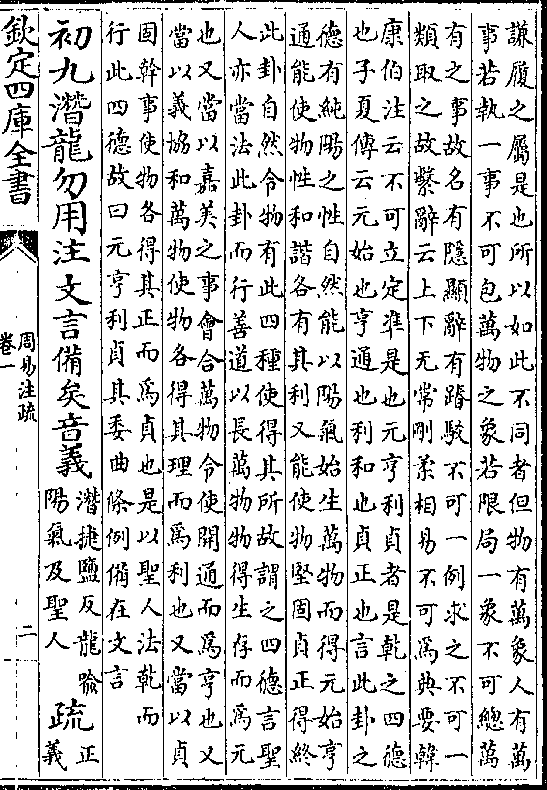 謙履之屬是也所以如此不同者但物有萬象人有萬
事若執一事不可包萬物之象若限局一象不可總萬
有之事故名有隱顯辭有踳駮不可一例求之不可一
類取之故繫辭云上下无常剛柔相易不可為典要韓
康伯注云不可立定準是也元亨利貞者是乾之四德
也子夏傳云元始也亨通也利和也貞正也言此卦之
德有純陽之性自然能以陽氣始生萬物而得元始亨
通能使物性和諧各有其利又能使物堅固貞正得終
此卦自然令物有此四種使得其所故謂之四德言聖
人亦當法此卦而行善道以長萬物物得生存而為元
也又當以嘉美之事會合萬物令使開通而為亨也又
當以義協和萬物使物各得其理而為利也又當以貞
固幹事使物各得其正而為貞也是以聖人法乾而
行此四德故曰元亨利貞其委曲條例備在文言
初九潛龍勿用注文言備矣音義
潛捷鹽反龍喻
陽氣及聖人
疏
正
義
欽定四庫全書
周易注疏
卷一
二